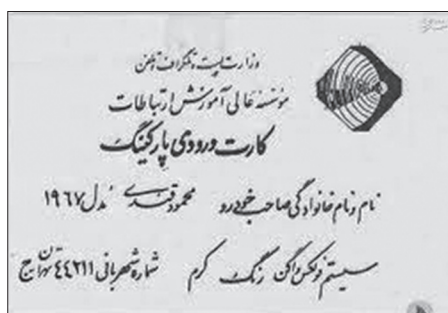 وزارت پست و تلگراف و تلفن
مؤسسه عالی آموزش ارتباطات
کارت ورودی پارکینگ
نام و نام خانوادگی صاحب خودرو محمود قندی مدل ۱۹۶۷
سیستم فولکس واگن رنگ کرم شماره شهربانی ۴۴۲۱۱ تهران ج